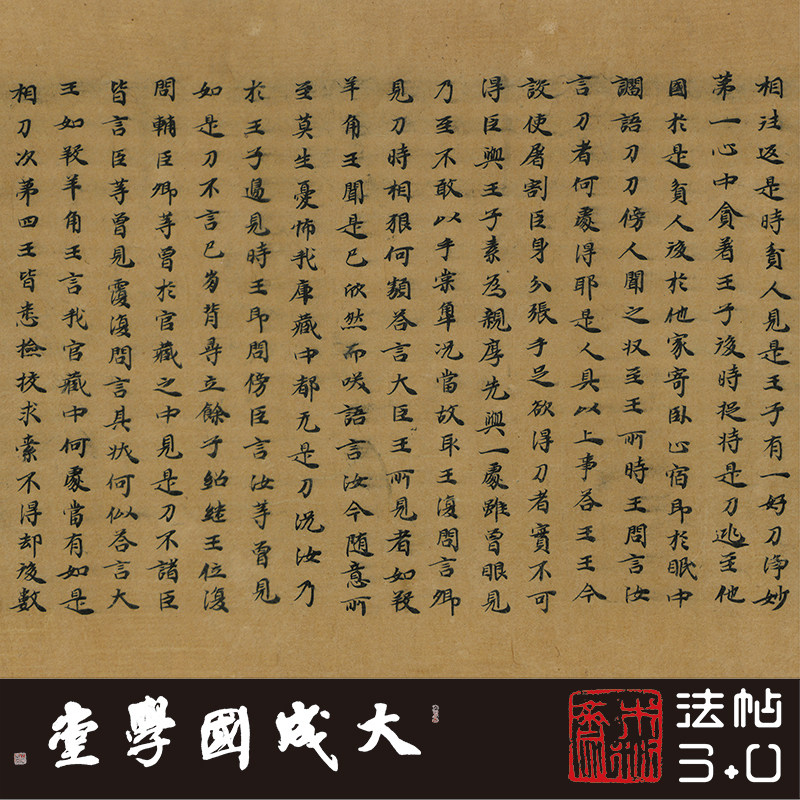 相往返是時貧人見是王子有一好刀淨妙
第一心中貪着王子後時捉持是刀逃至他
國於是貧人後於他家寄卧止宿即於眠中
讇語刀刀傍人聞之收至王所時王問言汝
言刀者何處得耶是人具以上事荅王王今
設使屠割臣身分張手足欲得刀者實不可
得臣與王子素為親厚先與一處雖曾眼見
乃至不敢以手棠況當故取王復問言卿
見刀時相狠何類荅言大臣王所見者如羖
羊角王聞是已欣然而咲語言汝今随意所
至莫生憂怖我庫藏中都无是刀況汝乃
於王子邊見時王即問傍臣言汝等曾見
如是刀不言已崩背尋立餘子紹継王位復
問輔臣卿等曾於官藏之中見是刀不諸臣
皆言臣等曾見覆復問言其狀何似荅言大
王如羖羊角王言我官藏中何處當有如是
相刀次第四王皆悉撿挍求索不得却後數
大成國學堂
法帖
3.0